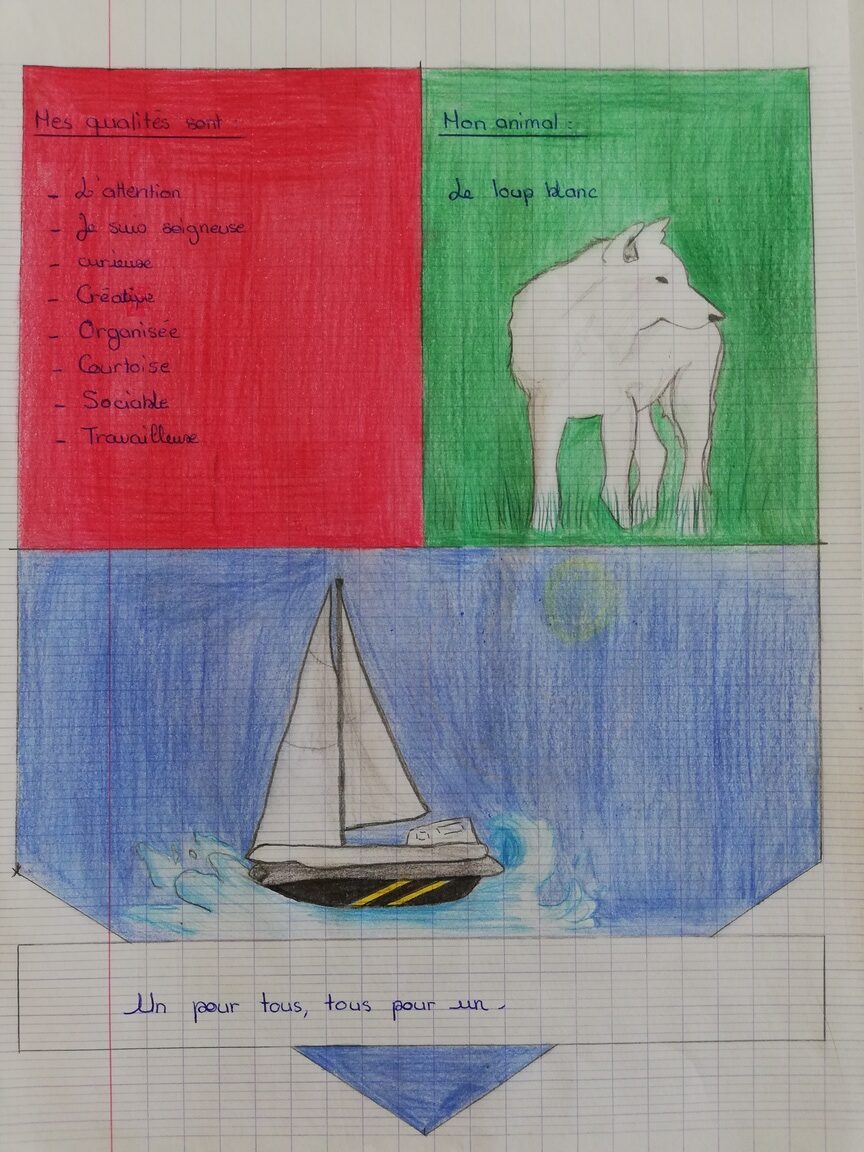 Mes qualités sont :
- L'attention
- Je suis soigneuse
- curieuse
- Créative
- Organisée
- Courtoise
- Sociable
- Travailleuse
Mon animal :
Le loup blanc
Un pour tous, tous pour un.